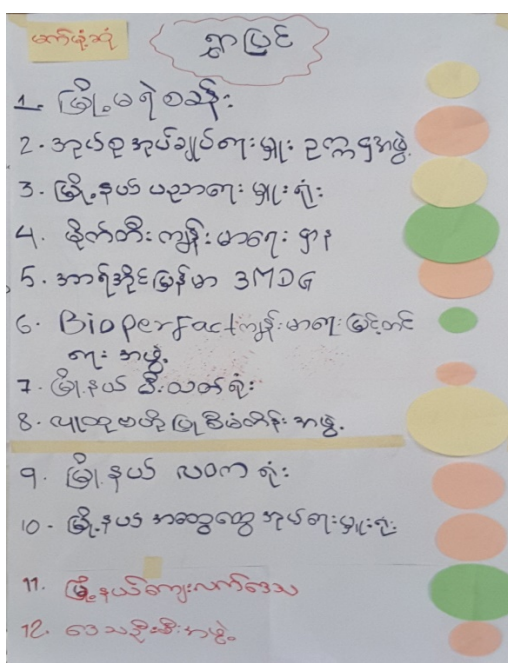 မက်မုံးဆုံ
ရွာပြင်
1. မြို့မရဲစခန်း
2. အုပ်စုအုပ်ချုပ်ရေးမှူး ဥက္ကဌအဖွဲ့
3. မြို့နယ် ပညာရေးမှူးရုံး
4. မိုက်တီးကျန်းမာရေးဌာန
5. အာရ်အိုင်မြန်မာ 3MDG
6. Bioperfactကျန်းမာရေးမြှင့်တင်
ရေး အဖွဲ့
7. မြို့နယ် မီးသတ်ရုံး
8. လူထုဗဟိုပြုစီမံကိန်း အဖွဲ့
9. မြို့နယ် လဝက ရုံး
10. မြို့နယ် အထွေထွေ အုပ်ရေးမှူးရုံး
11. မြို့နယ်ကျေးလက်ဒေသ
12. ဒေသဦးစီးအဖွဲ့